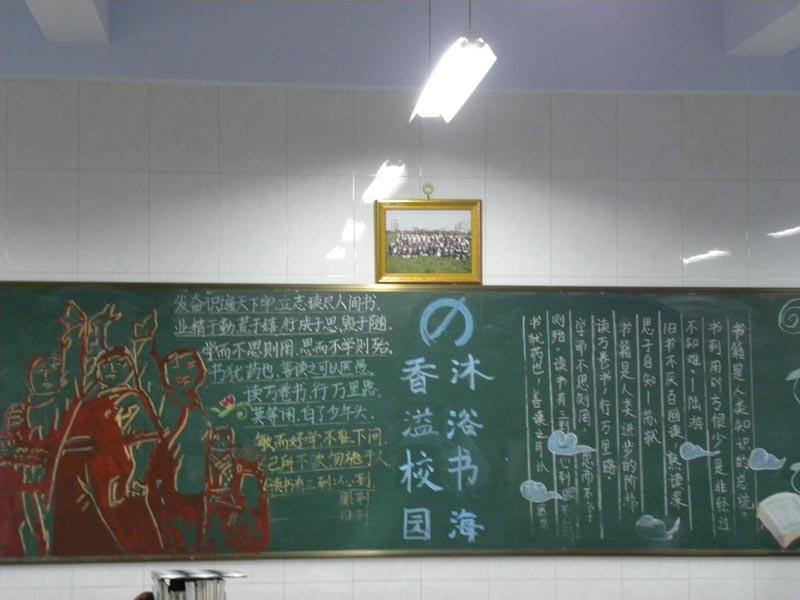 发奋识遍天下字,立志读尽人间书.
业精于勤荒于嬉,行成于思毁于随.
学而不思则罔,思而不学则殆.
书犹药也,善读之可以医愚.
读万卷书,行万里路.
莫等闲,白了少年头.
敏而好学,不耻下问.
己所不欲勿施于人
读书有三到:心到
眼到
口到
の
沐浴书海
香溢校园
书籍是人类知识的总统
书到用时方恨少,是非经过
不知难.—陆游
旧书不厌百回读,熟读深
思子自知—苏轼
书籍是人类进步的阶梯
读万卷书,行万里路.
学而不思则罔,思而不学
则殆.读书有三到 心到 眼
书犹药也,善读之可以医愚